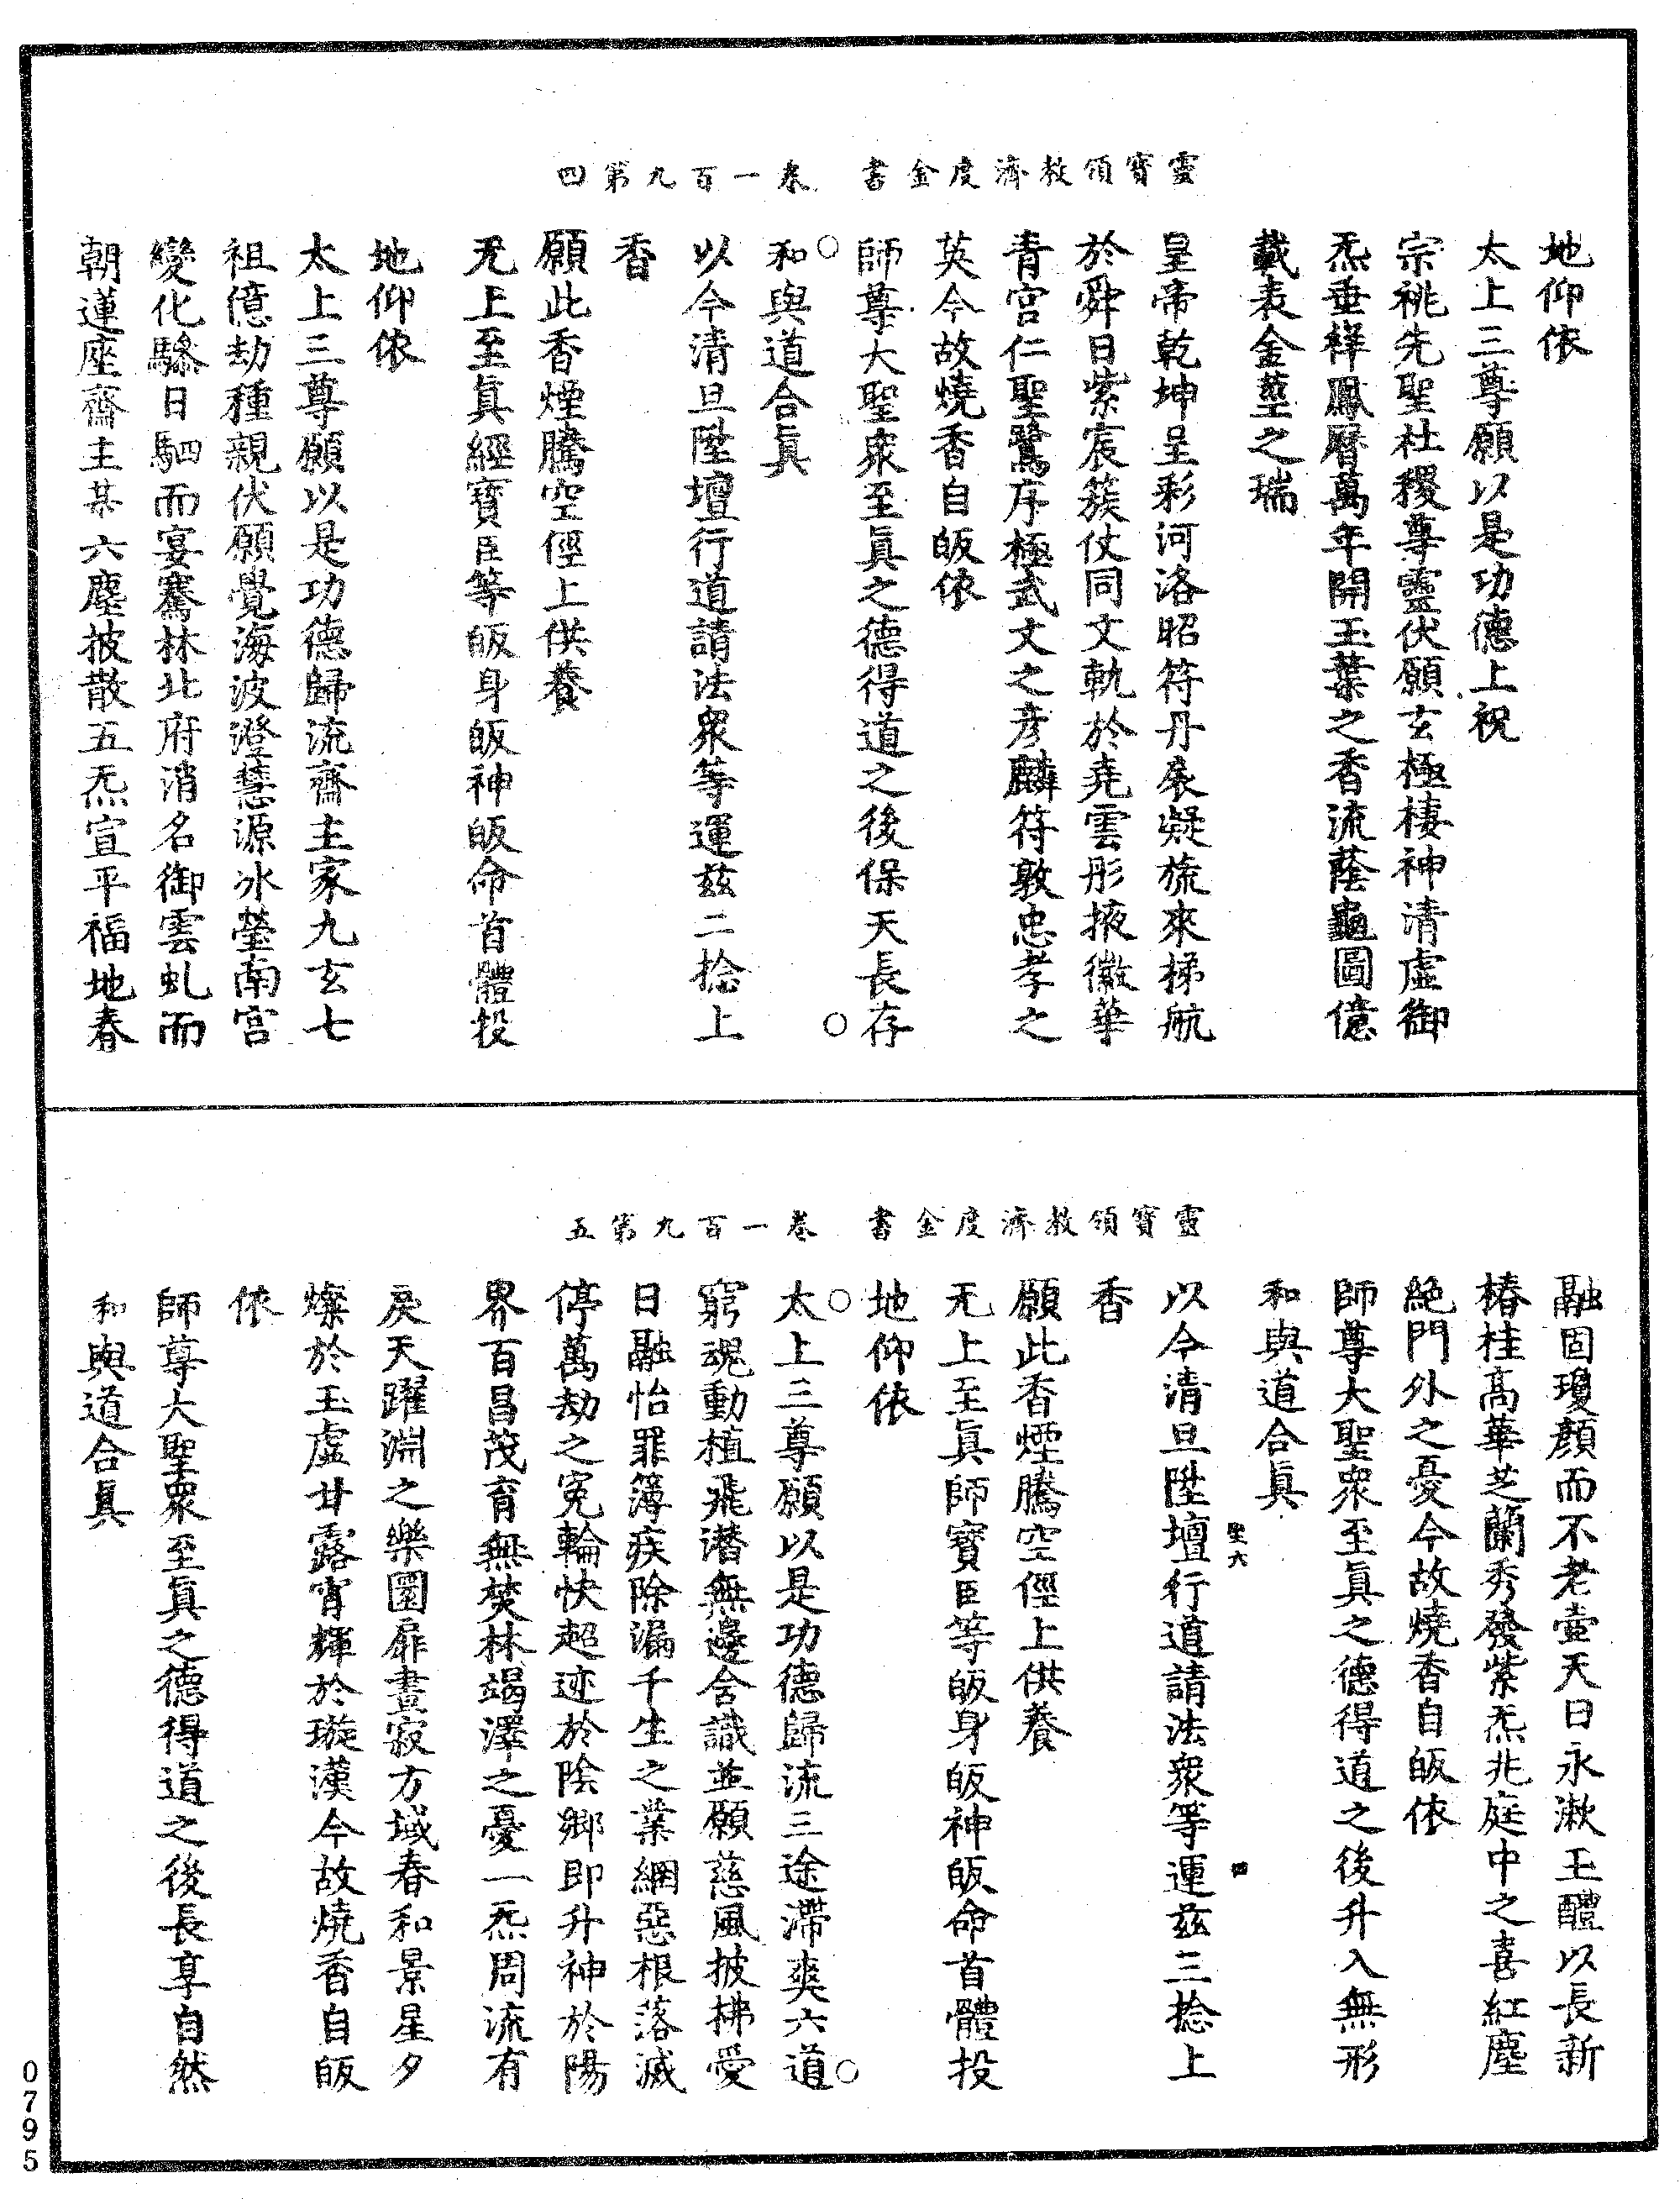 靈寶領教濟度金書　卷一百九第四
地仰依
太上三尊願以是功德上祝
宗祧先聖社稷尊靈伏願玄極棲神清虛御
炁垂祥鳳曆萬年開玉葉之香流蔭龜圖億
載表金莖之瑞
皇帝乾坤呈彩河洛昭符丹扆凝旒來梯航
於舜日紫宸簇仗同文軌於堯雲彤掖徽華
青宮仁聖鷺序極武文之彥麟符敦忠孝之
英今故燒香自皈依
師尊大聖衆至眞之德得道之後保天長存
○和與道合眞○
以今清旦陞壇行道請法衆等運茲二捻上
香
願此香煙騰空徑上供養
无上至眞經寶臣等皈身皈神皈命首體投
地仰依
太上三尊願以是功德歸流齋主家九玄七
祖億劫種親伏願覺海波澄慧源冰瑩南宮
變化驂日駟而宴騫林北府消名御雲虬而
朝蓮座齋主某六塵披散五炁宣平福地春
靈寶領教濟度金書　卷一百九第五
融固瓊顏而不老壺天日永漱玉醴以長新
椿桂高華芝蘭秀發紫炁兆庭中之喜紅塵
絕門外之憂今故燒香自皈依
師尊大聖衆至眞之德得道之後升入無形
和與道合眞
聖六　四
以今清旦陞壇行道請法衆等運茲三捻上
香
願此香煙騰空徑上供養
无上至眞師寶臣等皈身皈神皈命首體投
地仰依
○太上三尊願以是功德歸流三途滯爽六道○
窮魂動植飛潛無邊含識並願慈風披拂愛
日融怡罪簿疾除漏千生之業網惡根落滅
停萬劫之冤輪快超迹於陰鄉即升神於陽
界百昌茂育無焚林竭澤之憂一炁周流有
戾天躍淵之樂圜扉晝寂方域春和景星夕
燦於玉虛甘露宵輝於璇漢今故燒香自皈
依
師尊大聖衆至眞之德得道之後長享自然
和與道合眞
0795